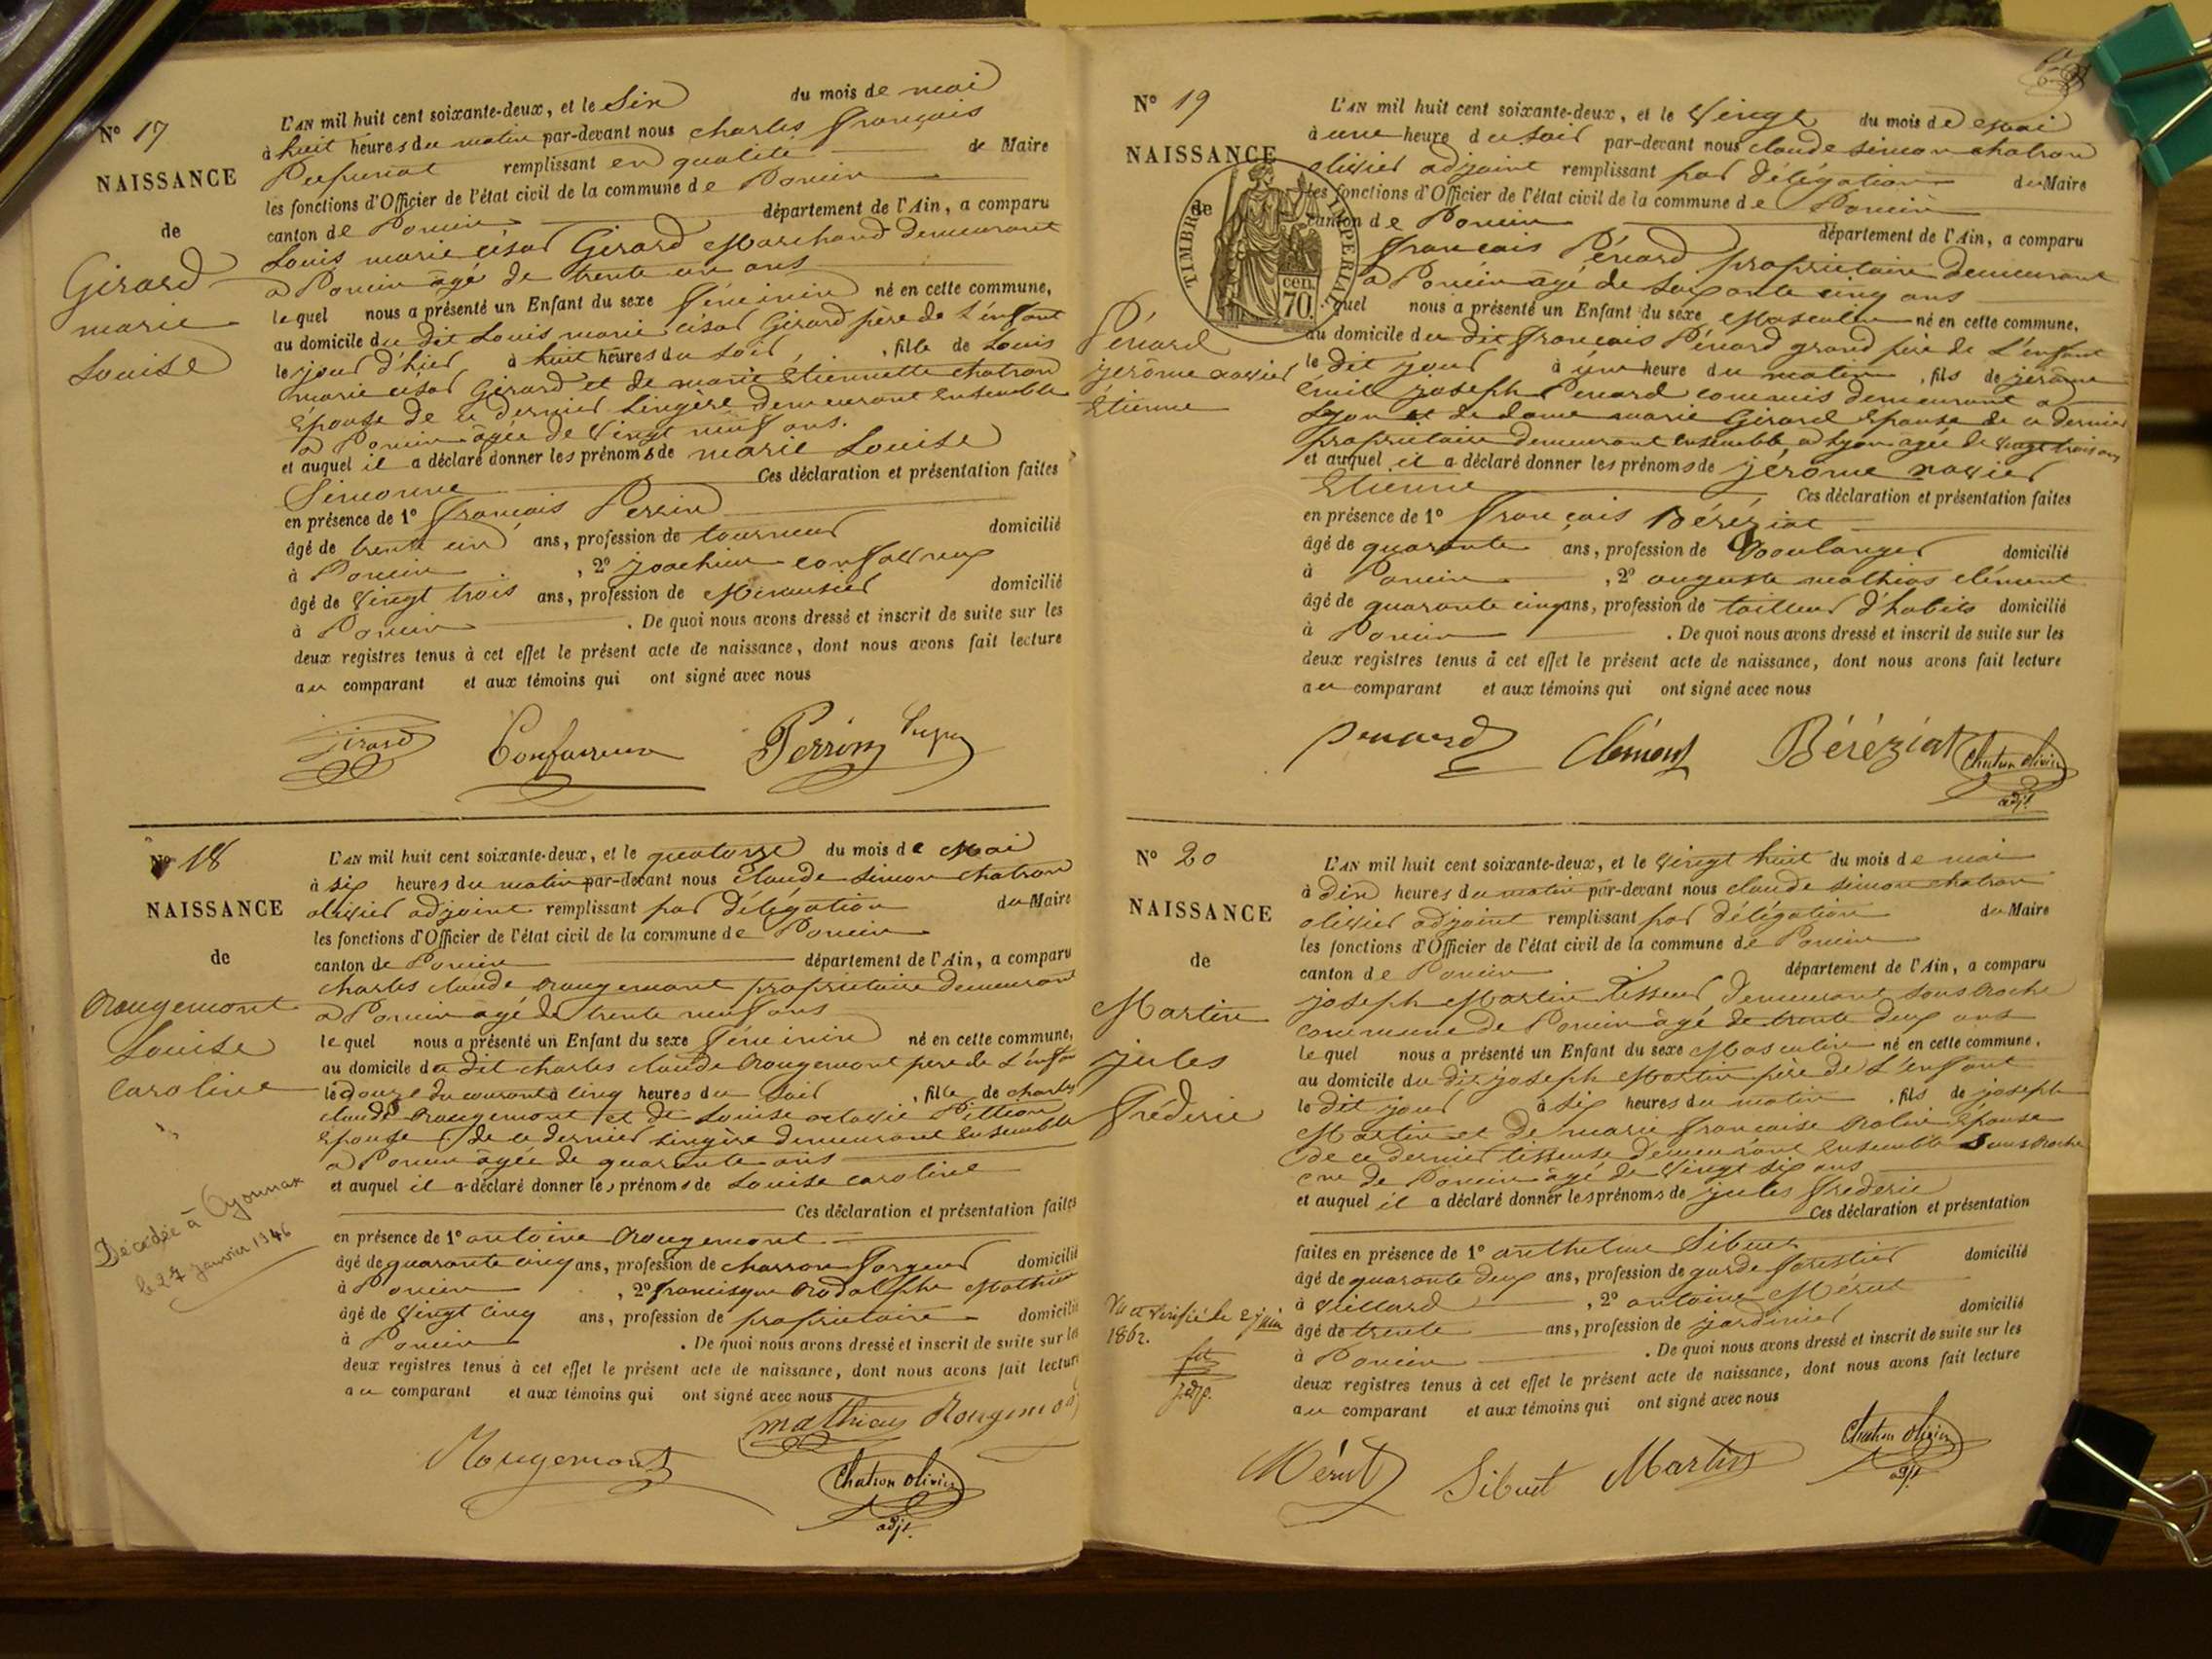 N° 17
NAISSANCE
de
Girard
marie
Louise
L'AN mil huit cent soixante-deux, et le Six du mois de mai
à huit heures du matin par-devant nous charles françois
remplissant en qualité de Maire
les fonctions d'Officier de l'état civil de la commune de Poncin
canton de Poncin département de l'Ain, a comparu
Louis marie césar Girard Marchand demeurant
a Poncin âgé de trente un ans
lequel nous a présenté un Enfant du sexe féminin né en cette commune,
au domicile du dit Louis marie césar Girard père de l'enfant
le jour d'hier à huit heures du soir, fille de Louis
marie césar Girard et de marie Etiennette chatron
épouse de ce dernier lingère demeurant ensemble
a Poncin âgée de vingt neuf ans.
et auquel il a déclaré donner les prénoms de marie Louise
Simonne Ces déclaration et présentation faites
en présence de 1° françois Perrin
âgé de trente un ans, profession de tourneur domicilié
à Poncin, 2° joachim confavreux
âgé de vingt trois ans, profession de Menuisier domicilié
à Poncin. De quoi nous avons dressé et inscrit de suite sur les
deux registres tenus à cet effet le présent acte de naissance, dont nous avons fait lecture
au comparant et aux témoins qui ont signé avec nous
Girard Confavreux Perrin
N° 18
NAISSANCE
de
Rougemont
Louise
caroline
Décédée à Oyonnax
le 27 janvier 1946
L'AN mil huit cent soixante-deux, et le quatorze du mois de Mai
à six heures du matin par-devant nous claude simon chatron
olivier adjoint remplissant par délégation du Maire
les fonctions d'Officier de l'état civil de la commune de Poncin
canton de Poncin département de l'Ain, a comparu
charles claude Rougemont propriétaire demeurant
a Poncin âgé de trente neuf ans
lequel nous a présenté un Enfant du sexe féminin né en cette commune,
au domicile du dit charles claude Rougemont père de l'enfant
le douze du courant à cinq heures du soir, fille de charles
claude Rougemont et de Louise octavie
épouse de ce dernier lingère demeurant ensemble
a Poncin âgée de quarante ans
et auquel il a déclaré donner les prénoms de Louise caroline
Ces déclaration et présentation faites
en présence de 1° antoine Rougemont
âgé de quarante cinq ans, profession de charron forgeur domicilié
à Poncin, 2° francisque Rodolphe Mathieu
âgé de vingt cinq ans, profession de propriétaire domicilié
à Poncin. De quoi nous avons dressé et inscrit de suite sur les
deux registres tenus à cet effet le présent acte de naissance, dont nous avons fait lecture
au comparant et aux témoins qui ont signé avec nous
mathieu Rougemont
Rougemont
Chatron olivier
adjt.
N° 19
NAISSANCE
de
TIMBRE IMPERIAL
70. cen.
Pénard
jérôme xavier
Etienne
L'AN mil huit cent soixante-deux, et le vingt du mois de Mai
à une heure du soir par-devant nous claude simon chatron
olivier adjoint remplissant par délégation du Maire
les fonctions d'Officier de l'état civil de la commune de Poncin
canton de Poncin département de l'Ain, a comparu
françois Pénard propriétaire demeurant
a Poncin âgé de soixante cinq ans
lequel nous a présenté un Enfant du sexe Masculin né en cette commune,
au domicile du dit françois Pénard grand père de l'enfant
le dit jour à une heure du matin, fils de jérôme
émile joseph Penard commis demeurant a
Lyon et de dame marie Girard épouse de ce dernier
propriétaire demeurant ensemble a Lyon agée de vingt trois ans
et auquel il a déclaré donner les prénoms de jérôme xavier
Etienne Ces déclaration et présentation faites
en présence de 1° françois Béréziat
âgé de quarante ans, profession de Boulanger domicilié
à Poncin, 2° auguste mathias clément
âgé de quarante cinq ans, profession de tailleur d'habits domicilié
à Poncin. De quoi nous avons dressé et inscrit de suite sur les
deux registres tenus à cet effet le présent acte de naissance, dont nous avons fait lecture
au comparant et aux témoins qui ont signé avec nous
Penard Clément Béréziat Chatron olivier
adjt.
N° 20
NAISSANCE
de
Martin
jules
fréderic
Vu et vérifié le 2 juin
1862.
L'AN mil huit cent soixante-deux, et le vingt huit du mois de mai
à dix heures du matin par-devant nous claude simon chatron
olivier adjoint remplissant par délégation du Maire
les fonctions d'Officier de l'état civil de la commune de Poncin
canton de Poncin département de l'Ain, a comparu
joseph Martin tisseur, demeurant sous Roche
commune de Poncin âgé de trente deux ans
lequel nous a présenté un Enfant du sexe Masculin né en cette commune,
au domicile du dit joseph Martin père de l'enfant
le dit jour à six heures du matin, fils de joseph
Martin et de marie françoise épouse
de ce dernier tisseuse demeurant ensemble sous Roche
cne de Poncin âgé de vingt six ans
et auquel il a déclaré donner les prénoms de jules fréderic
Ces déclaration et présentation
faites en présence de 1° anthelme Sibuet
âgé de quarante deux ans, profession de garde forestier domicilié
à, 2° antoine Mérut
âgé de trente ans, profession de jardinier domicilié
à Poncin. De quoi nous avons dressé et inscrit de suite sur les
deux registres tenus à cet effet le présent acte de naissance, dont nous avons fait lecture
au comparant et aux témoins qui ont signé avec nous
Mérut Sibuet Martin Chatron olivier
adjt.